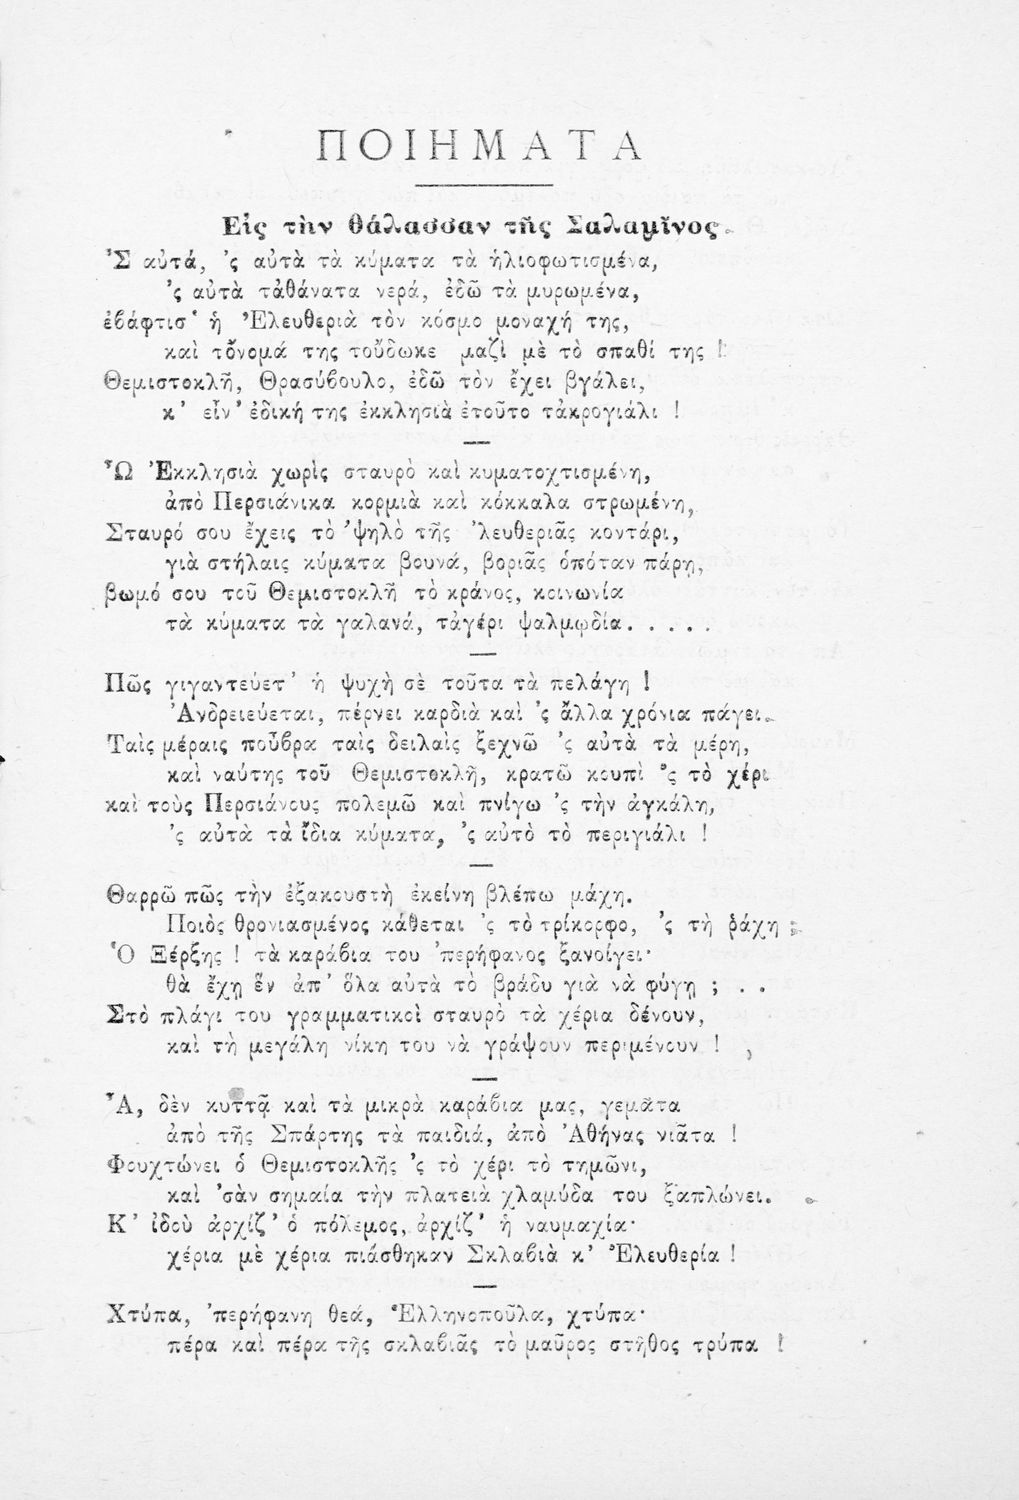 ΠΟΙΗΜΑΤΑ
Εἰς τὴν θάλασσαν τῆς Σαλαμῖνος.
Ἐ αὐτά, 'ς αὐτὰ τὰ κύματα τὰ ἡλιοφωτισμένα,
'ς αὐτὰ τἀθάνατα νερά, ἐδῶ τὰ μυρωμένα,
ἐβάφτισ' ἡ Ἐλευθεριὰ τὸν κόσμο μοναχή της,
καὶ τὄνομά της τοὔδωκε μαζὶ μὲ τὸ σπαθί της !
Θεμιστοκλῆ, Θρασύβουλο, ἐδῶ τὸν ἔχει βγάλει,
κ' εἶν' ἐδική της ἐκκλησιὰ ἐτοῦτο τἀκρογιάλι !
Ὦ Ἐκκλησιὰ χωρὶς σταυρὸ καὶ κυματοχτισμένη,
ἀπὸ Περσιάνικα κορμιὰ καὶ κόκκαλα στρωμένη,
Σταυρό σου ἔχεις τὸ 'ψηλὸ τῆς 'λευθεριᾶς κοντάρι,
γιὰ στήλαις κύματα βουνά, βοριᾶς ὁπόταν πάρῃ,
βωμό σου τοῦ Θεμιστοκλῆ τὸ κράνος, κοινωνία
τὰ κύματα τὰ γαλανά, τἀγέρι ψαλμῳδία. . . . .
Πῶς γιγαντεύετ' ἡ ψυχὴ σὲ τοῦτα τὰ πελάγη !
Ἀνδρειεύεται, πέρνει καρδιὰ καὶ 'ς ἄλλα χρόνια πάγει.
Ταὶς μέραις ποὖβρα ταὶς δειλαὶς ξεχνῶ 'ς αὐτὰ τὰ μέρη,
καὶ ναύτης τοῦ Θεμιστοκλῆ, κρατῶ κουπὶ 'ς τὸ χέρι
καὶ τοὺς Περσιάνους πολεμῶ καὶ πνίγω 'ς τὴν ἀγκάλη,
'ς αὐτὰ τὰ ἴδια κύματα, 'ς αὐτὸ τὸ περιγιάλι !
Θαρρῶ πῶς τὴν ἐξακουστὴ ἐκείνη βλέπω μάχη.
Ποιὸς θρονιασμένος κάθεται 'ς τὸ τρίκορφο, 'ς τὴ ῥάχη ;
Ὁ Ξέρξης ! τὰ καράβια του 'περήφανος ξανοίγει·
θὰ ἔχῃ ἓν ἀπ' ὅλα αὐτὰ τὸ βράδυ γιὰ νὰ φύγῃ ; . .
Στὸ πλάγι του γραμματικοὶ σταυρὸ τὰ χέρια δένουν,
καὶ τὴ μεγάλη νίκη του νὰ γράψουν περιμένουν !
Ἆ, δὲν κυττᾷ καὶ τὰ μικρὰ καράβια μας, γεμᾶτα
ἀπὸ τῆς Σπάρτης τὰ παιδιά, ἀπὸ Ἀθήνας νιᾶτα !
Φουχτώνει ὁ Θεμιστοκλῆς 'ς τὸ χέρι τὸ τημῶνι,
καὶ 'σὰν σημαία τὴν πλατειὰ χλαμύδα του ξαπλώνει.
Κ' ἰδοὺ ἀρχίζ' ὁ πόλεμος, ἀρχίζ' ἡ ναυμαχία·
χέρια μὲ χέρια πιάσθηκαν Σκλαβιὰ κ' Ἐλευθερία !
Χτύπα, 'περήφανη θεά, Ἑλληνοποῦλα, χτύπα·
πέρα καὶ πέρα τῆς σκλαβιᾶς τὸ μαῦρος στῆθος τρύπα !